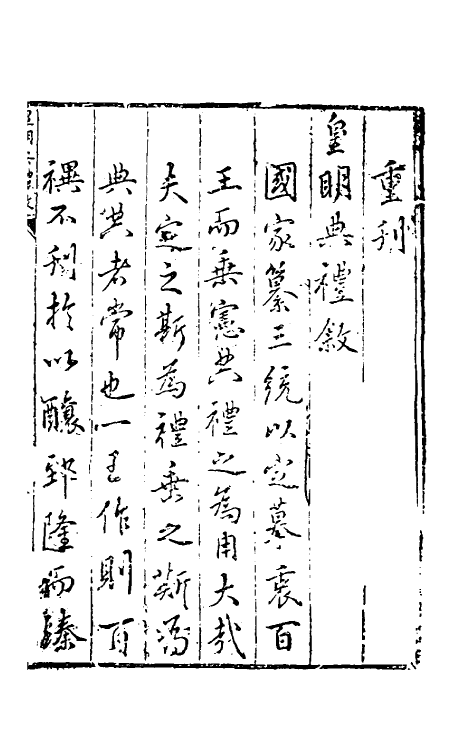 重刊
皇明典禮敘
國家纂三統以定摹裒百
王而垂憲典禮之為用大哉
夫定之斯為禮垂之斯為
典典者常也一王作則百
禩不刊於以釀郅隆而臻